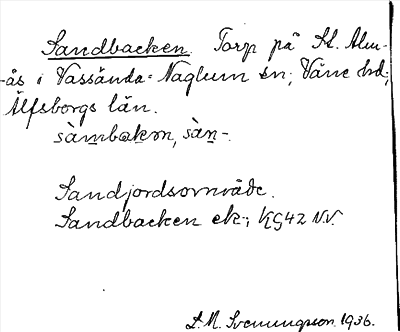 Sandbacken. Torp på St. Alm-
-ås i Vassända-Naglum sn; Väne hd;
Älfsborgs län.
sàmbakən, sàn-.
Sandjordsområde.
Sandbacken ek; KG42 N.V.
L. M. Svenungsson 1936.